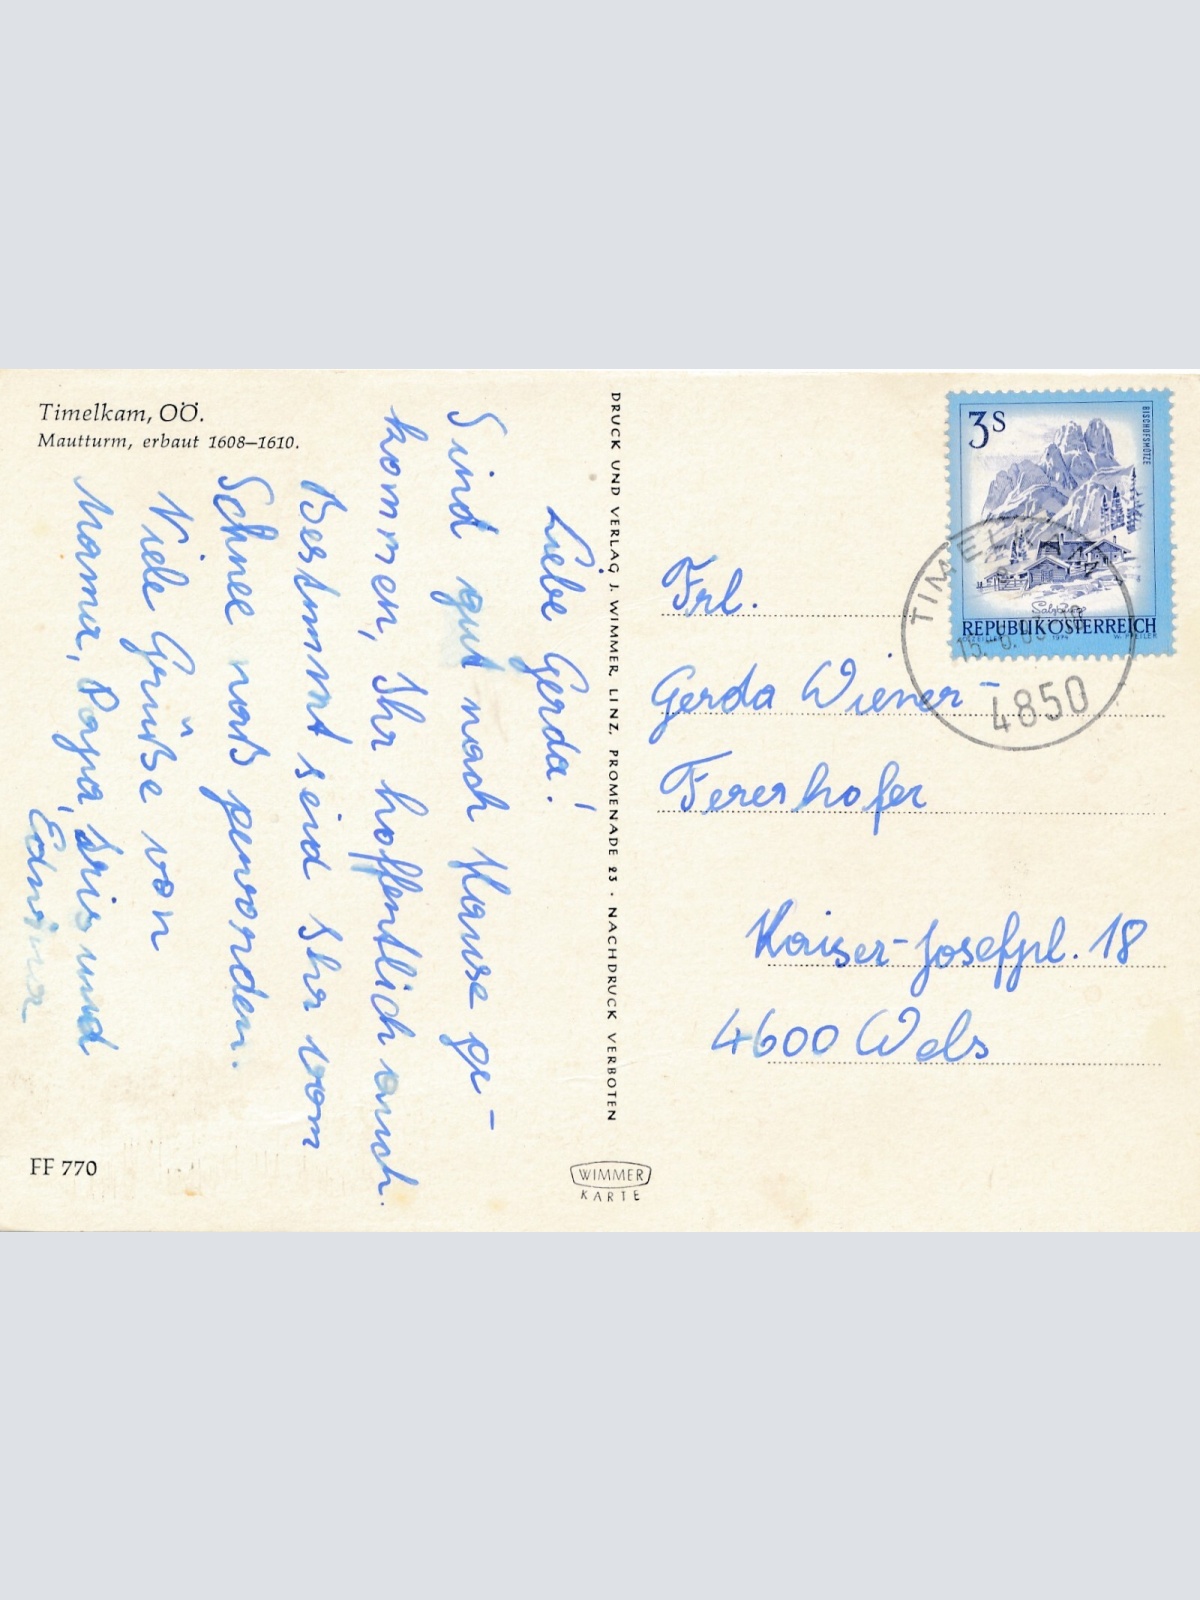 Timelkam, OÖ.
Mautturm, erbaut 1608–1610.
Liebe Gerda!
Sind gut nach Hause ge-
kommen, Ihr hoffentlich auch.
Bestimmt seid Ihr vom
Schnee naß geworden.
Viele Grüße von
Mama, Papa, Iris und
Edwina
FF 770
DRUCK UND VERLAG J. WIMMER, LINZ, PROMENADE 23 · NACHDRUCK VERBOTEN
WIMMER
KARTE
3S
BISCHOFSMÜTZE
Salzburg
REPUBLIK ÖSTERREICH
1974
TIMELKAM
4850
Frl.
Gerda Wiener-
Fererhofer
Kaiser-Josefpl. 18
4600 Wels